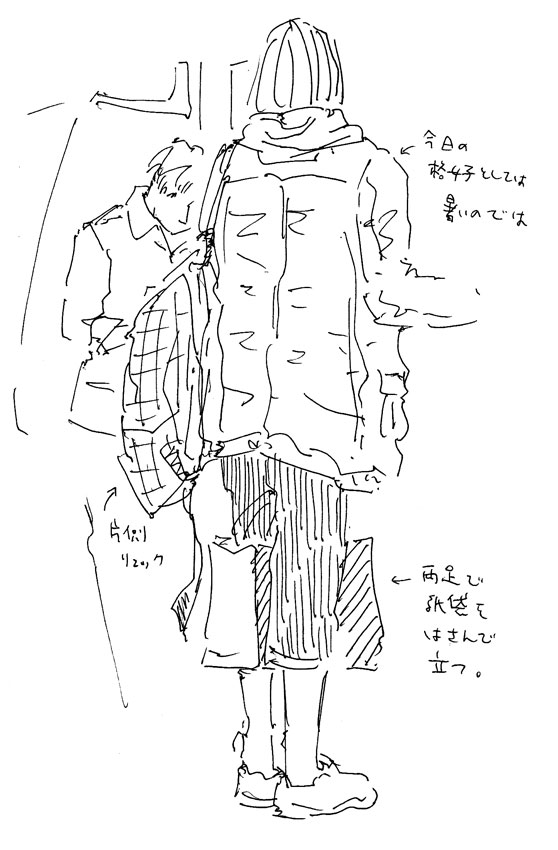 今日の
格好としては
暑いのでは
片側
リュック
両足で
紙袋を
はさんで
立つ。